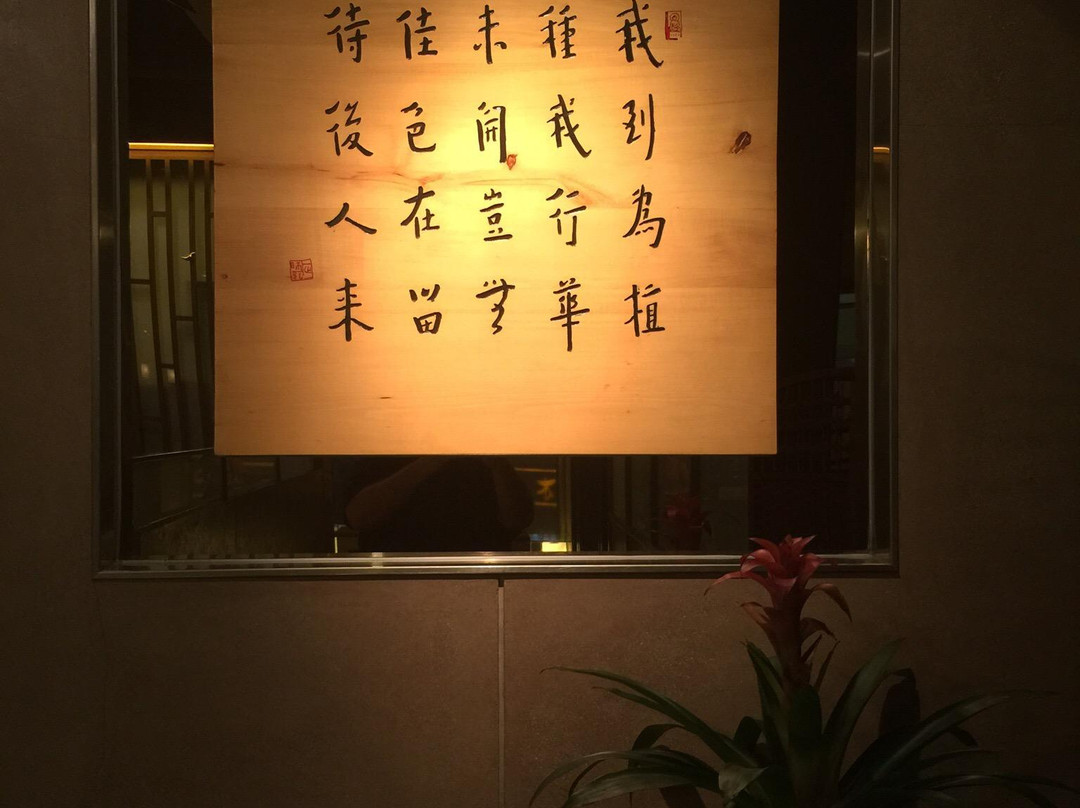 我到為植
種我行華
未開豈無
佳色在留
待後人来